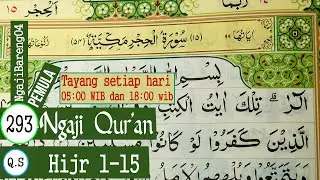 رُبَمَا
(١٥) سُوْرَةُ الْحِجْرِ مَكِّيَّةٌ (٥٤)
NgajiBareng04
PEMULA
Tayang setiap hari
05:00 WIB dan 18:00 wib
بِسْمِ
الٓرٰ تِلْكَ اٰيٰتُ الْكِتٰبِ
293 Ngaji Qur'an
الَّذِيْنَ كَفَرُوْا لَوْ كَانُوْا
Q.S Hijr 1-15